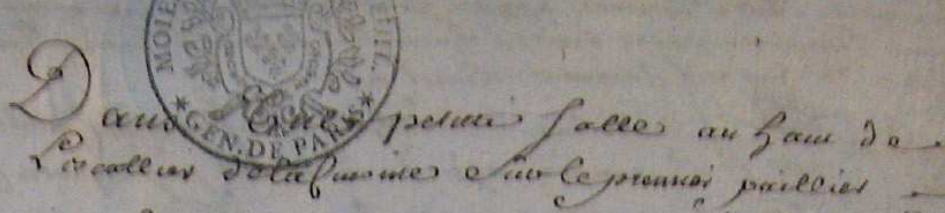 MOIE
GEN. DE PARIS
Dans une petitte Salle au haut de
L'escallier de la Cuisine Sur le premier paillier